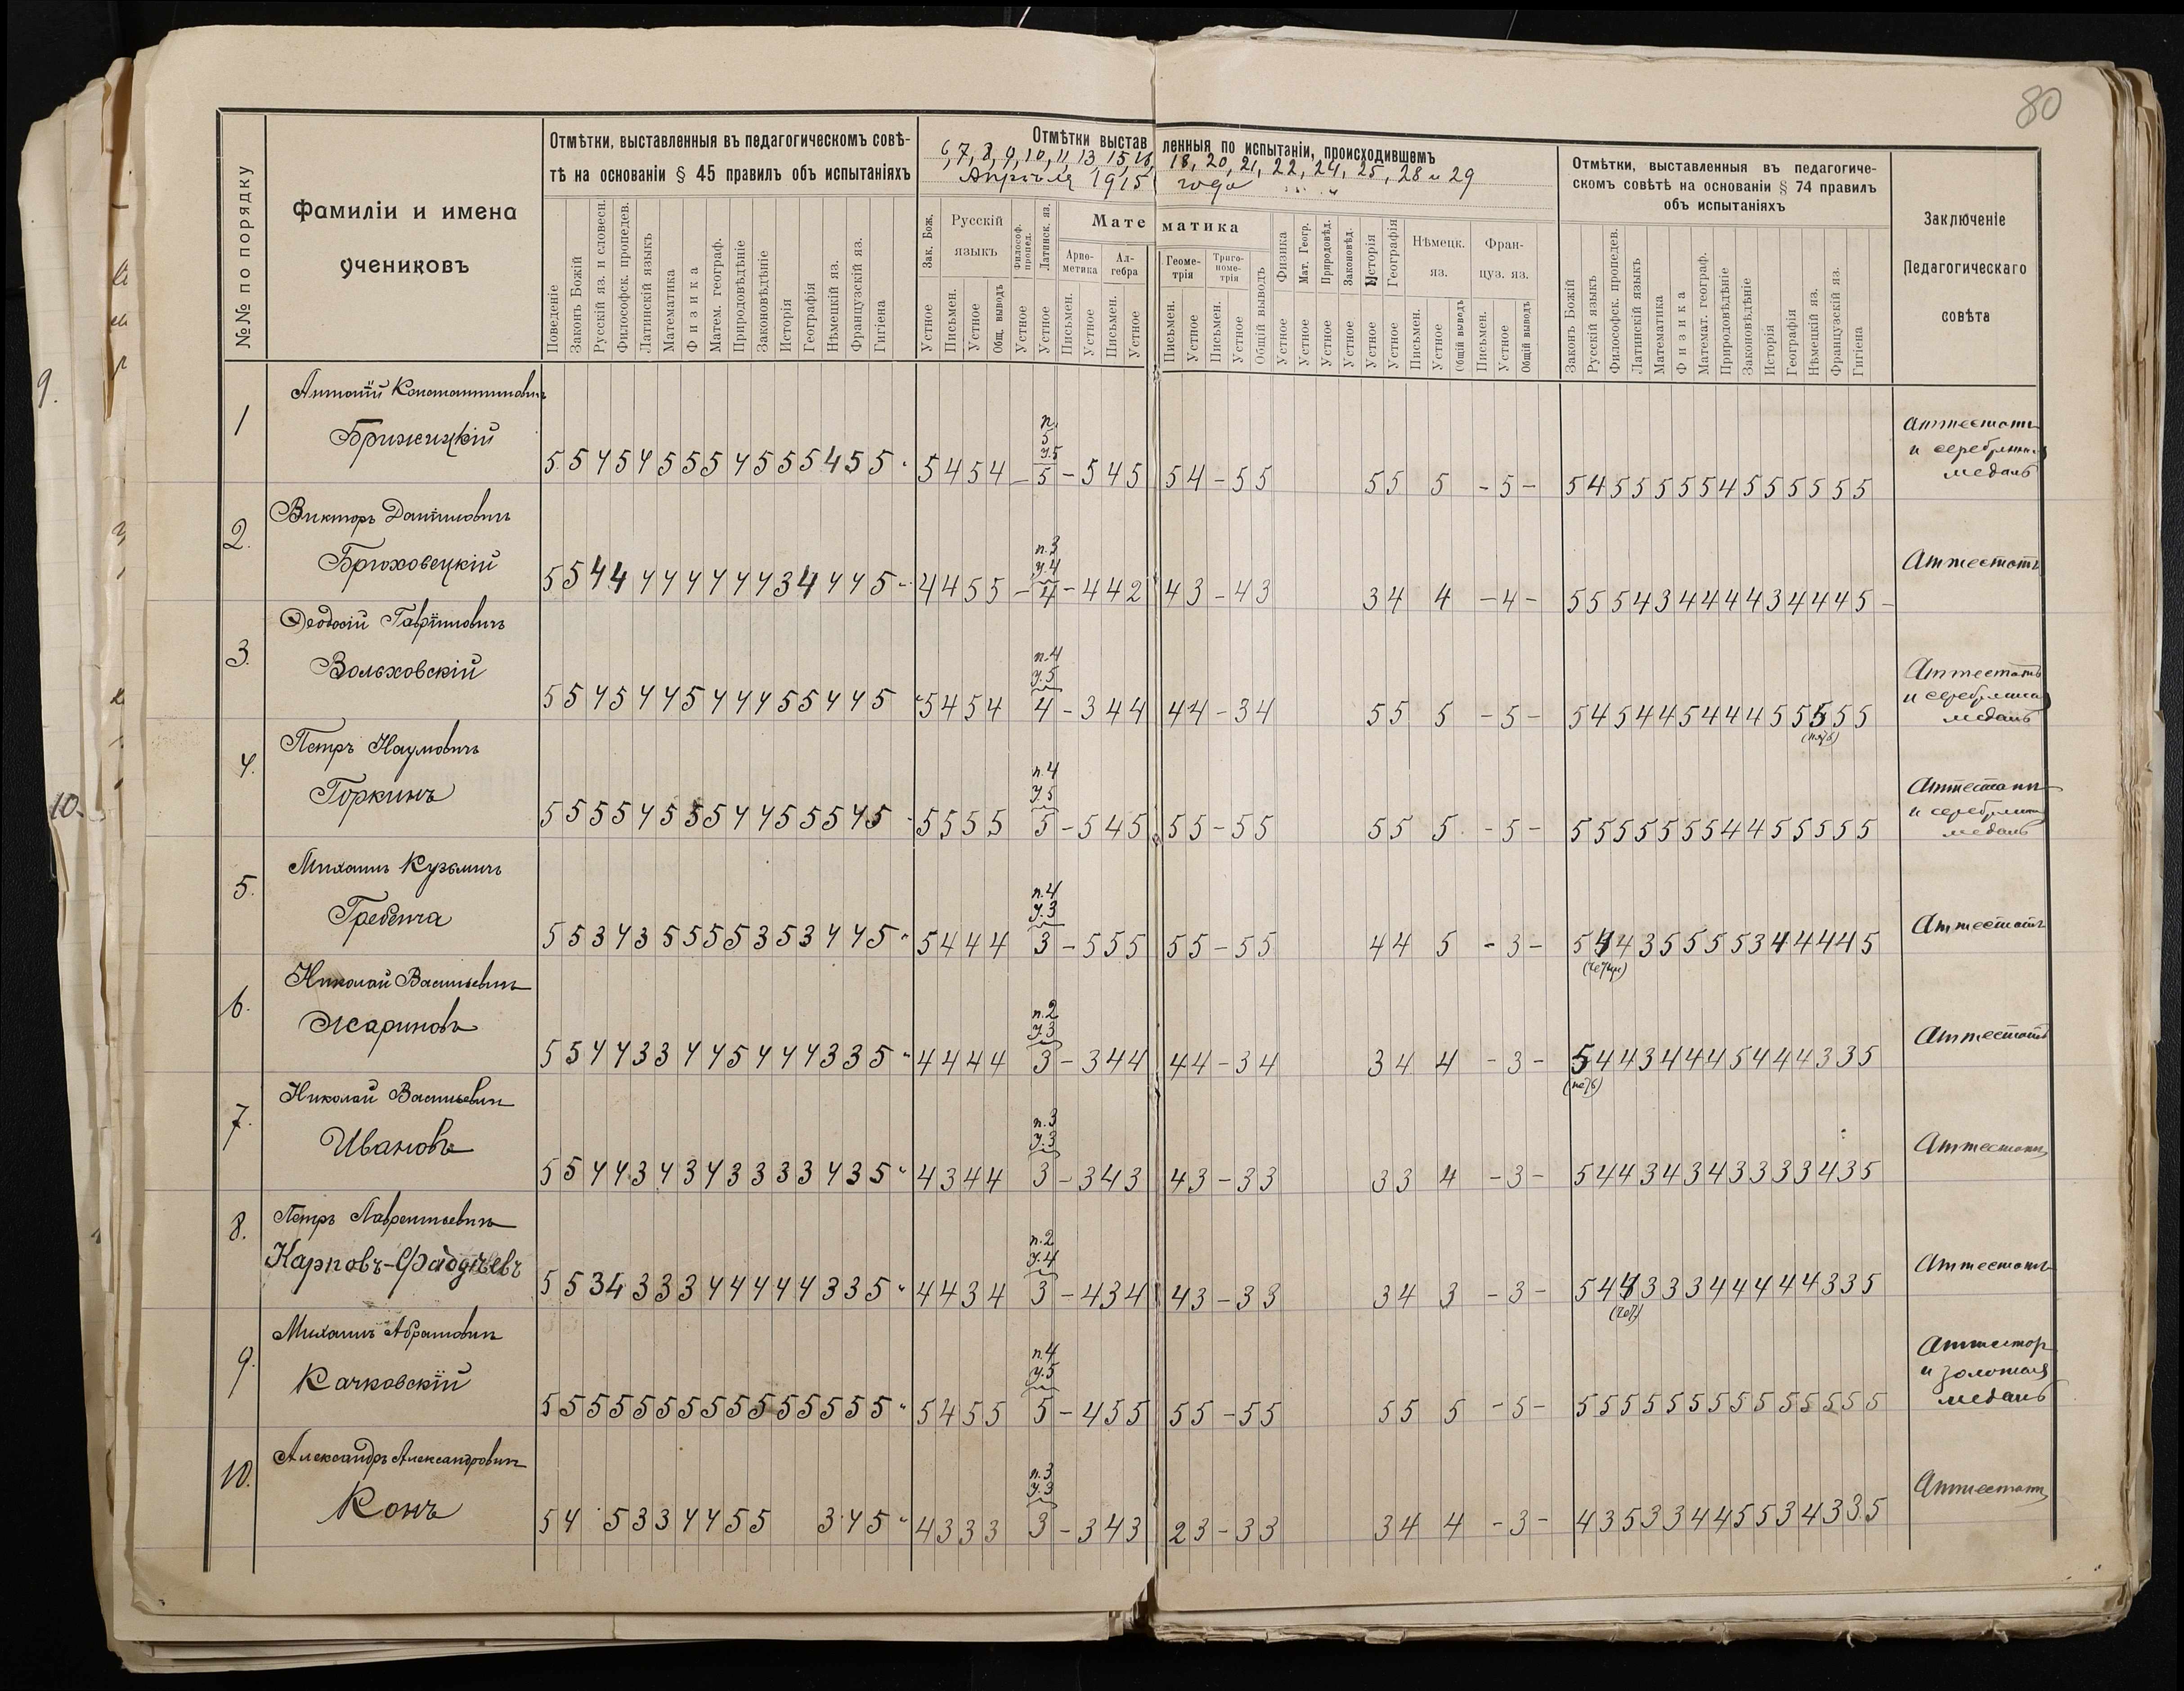 80
№№ по порядку
Фамиліи и имена
учениковъ
Отмѣтки, выставленныя въ педагогическомъ совѣ-
тѣ на основаніи § 45 правилъ объ испытаніяхъ
Поведеніе
Законъ Божій
Русскій яз. и словесн.
Философск. пропедев.
Латинскій языкъ
Математика
Физика
Матем. географ.
Природовѣдѣніе
Законовѣдѣніе
Исторія
Географія
Нѣмецкій яз.
Французскій яз.
Гигіена
Отмѣтки выставленныя по испытаніи, происходившемъ
6, 7, 8, 9, 10, 11, 13, 15, 16, 18, 20, 21, 22, 24, 25, 28 и 29
Апрѣля 1915 года
Зак. Бож.
Устное
Русскій
языкъ
Письмен.
Устное
Общ. выводъ
Философ. пропед.
Устное
Латинск. яз.
Устное
Математика
Арие-
метика
Письмен.
Устное
Ал-
гебра
Письмен.
Устное
Геоме-
трія
Письмен.
Устное
Триго-
номе-
трія
Письмен.
Устное
Общій выводъ
Физика
Устное
Мат. Геогр.
Устное
Природовѣд.
Устное
Законовѣд.
Устное
Исторія
Устное
Географія
Устное
Нѣмецк.
яз.
Письмен.
Устное
Общій выводъ
Фран-
цуз. яз.
Письмен.
Устное
Общій выводъ
Отмѣтки, выставленныя въ педагогиче-
скомъ совѣтѣ на основаніи § 74 правилъ
объ испытаніяхъ
Законъ Божій
Русскій языкъ
Философск. пропедев.
Латинскій языкъ
Математика
Физика
Математ. географ.
Природовѣдѣніе
Законовѣдѣніе
Исторія
Географія
Нѣмецкій яз.
Французскій яз.
Гигіена
Заключеніе
Педагогическаго
совѣта
1
Антоній Константиновичъ
Брижицкій
5 5 4 5 4 5 5 5 4 5 5 5 4 5 5
п.
5
у.5
5 4 5 4 – 5 – 5 4 5 5 4 – 5 5 5 5 5 – 5 –
5 4 5 5 5 5 5 4 5 5 5 5 5 5
Аттестатъ
и серебряная
медаль
2.
Викторъ Даніиловичъ
Брюховецкій
5 5 4 4 4 4 4 4 4 4 3 4 4 4 5
п.3
у.4
4 4 5 5 – 4 – 4 4 2 4 3 – 4 3 3 4 4 – 4 –
5 5 5 4 3 4 4 4 4 3 4 4 4 5 –
Аттестатъ
3.
Ѳеодосій Гавріиловичъ
Вольховскій
5 5 4 5 4 4 5 4 4 4 5 5 4 4 5
п.4
у.5
5 4 5 4 4 – 3 4 4 4 4 – 3 4 5 5 5 – 5 –
5 4 5 4 4 5 4 4 4 5 5 5 5 5
(пять)
Аттестатъ
и серебряная
медаль
4.
Петръ Наумовичъ
Горкинъ
5 5 5 5 4 5 5 5 4 4 5 5 5 4 5
п.4
у.5
5 5 5 5 5 – 5 4 5 5 5 – 5 5 5 5 5 – 5 –
5 5 5 5 5 5 5 4 4 5 5 5 5 5
Аттестатъ
и серебряная
медаль
5.
Михаилъ Кузьмичъ
Гребенча
5 5 3 4 3 5 5 5 5 3 5 3 4 4 5
п.4
у.3
5 4 4 4 3 – 5 5 5 5 5 – 5 5 4 4 5 – 3 –
5 4 4 3 5 5 5 5 3 4 4 4 4 5
Аттестатъ
6.
Николай Васильевичъ
Жариновъ
5 5 4 4 3 3 4 4 5 4 4 4 3 3 5
п.2
у.3
4 4 4 4 3 – 3 4 4 4 4 – 3 4 3 4 4 – 3 –
5 4 4 3 4 4 4 5 4 4 4 3 3 5
Аттестатъ
7.
Николай Васильевичъ
Ивановъ
5 5 4 4 3 4 3 4 3 3 3 3 4 3 5
п.3
у.3
4 3 4 4 3 – 3 4 3 4 3 – 3 3 3 3 4 – 3 –
5 4 4 3 4 3 4 3 3 3 3 4 3 5
Аттестатъ
8.
Петръ Лаврентьевичъ
Карповъ-Фаддѣевъ
5 5 3 4 3 3 3 4 4 4 4 4 3 3 5
п.2
у.4
4 4 3 4 3 – 4 3 4 4 3 – 3 3 3 4 3 – 3 –
5 4 4 3 3 3 4 4 4 4 4 3 3 5
Аттестатъ
9.
Михаилъ Абрамовичъ
Качковскій
5 5 5 5 5 5 5 5 5 5 5 5 5 5 5
п.4
у.5
5 4 5 5 5 – 4 5 5 5 5 – 5 5 5 5 5 – 5 –
5 5 5 5 5 5 5 5 5 5 5 5 5 5
и золотая
медаль
10.
Александръ Александровичъ
Конъ
5 4 5 3 3 4 4 5 5 3 4 5
п.3
у.3
4 3 3 3 3 – 3 4 3 2 3 – 3 3 3 4 4 – 3 –
4 3 5 3 3 4 4 5 5 3 4 3 3 5
Аттестатъ
9.
10.